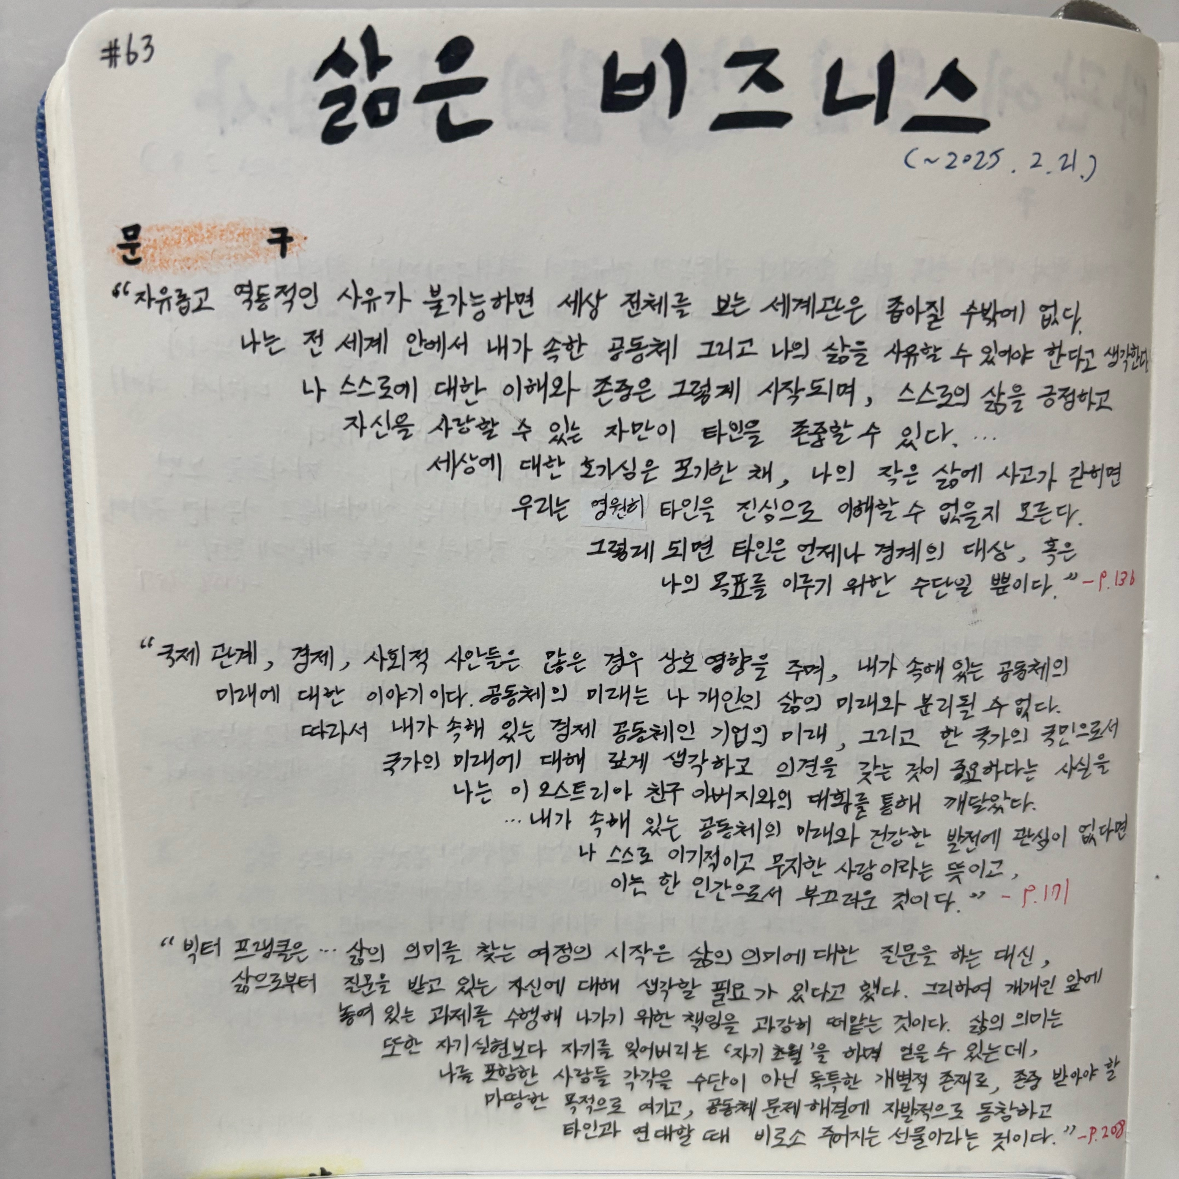 #63
삶은 비즈니스
(~2025. 2. 21.)
문 구
“자유롭고 역동적인 사유가 불가능하면 세상 전체를 보는 세계관은 좁아질 수밖에 없다.
나는 전 세계 안에서 내가 속한 공동체 그리고 나의 삶을 사유할 수 있어야 한다고 생각한다
나 스스로에 대한 이해와 존중은 그렇게 시작되며, 스스로의 삶을 긍정하고
자신을 사랑할 수 있는 자만이 타인을 존중할 수 있다. …
세상에 대한 호기심은 포기한 채, 나의 작은 삶에 사고가 갇히면
우리는 영원히 타인을 진심으로 이해할 수 없을지 모른다.
그렇게 되면 타인은 언제나 경계의 대상, 혹은
나의 목표를 이루기 위한 수단일 뿐이다.” -p.136
“국제 관계, 경제, 사회적 사안들은 많은 경우 상호 영향을 주며, 내가 속해 있는 공동체의
미래에 대한 이야기이다. 공동체의 미래는 나 개인의 삶의 미래와 분리될 수 없다.
따라서 내가 속해 있는 경제 공동체인 기업의 미래, 그리고 한 국가의 국민으로서
국가의 미래에 대해 깊게 생각하고 의견을 갖는 것이 중요하다는 사실을
나는 이 오스트리아 친구 아버지와의 대화를 통해 깨달았다.
… 내가 속해 있는 공동체의 미래와 건강한 발전에 관심이 없다면
나 스스로 이기적이고 무지한 사람이라는 뜻이고,
이는 한 인간으로서 부끄러운 것이다.” - p.171
“빅터 프랭클은 … 삶의 의미를 찾는 여정의 시작은 삶의 의미에 대한 질문을 하는 대신,
삶으로부터 질문을 받고 있는 자신에 대해 생각할 필요가 있다고 했다. 그리하여 개개인 앞에
놓여 있는 과제를 수행해 나가기 위한 책임을 과감히 떠맡는 것이다. 삶의 의미는
또한 자기실현보다 자기를 잊어버리는 ‘자기 초월’을 하며 얻을 수 있는데,
나를 포함한 사람들 각각을 수단이 아닌 독특한 개별적 존재로, 존중 받아야 할
마땅한 목적으로 여기고, 공동체 문제 해결에 자발적으로 동참하고
타인과 연대할 때 비로소 주어지는 선물이라는 것이다.” -p.208